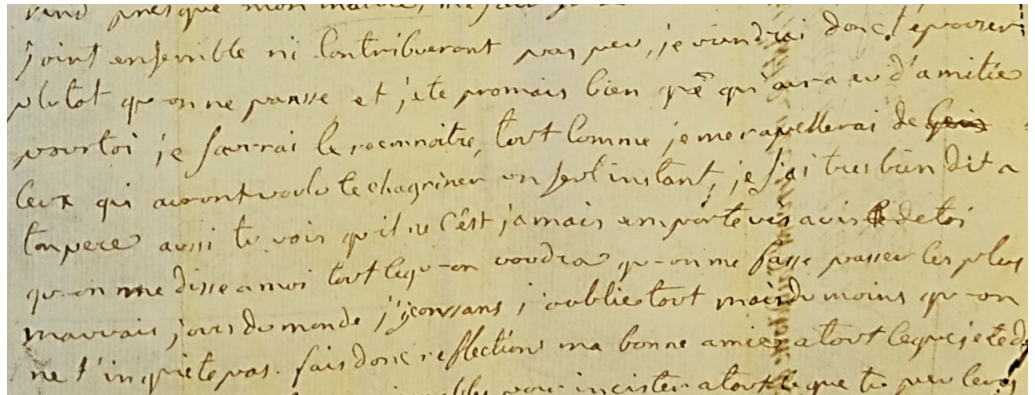 rend presque mon
joint ensemble ni contribueront pas peu, je viendrai donc t'épouser
plutot qu-on ne pansse et je te promais bien que qui aura eu d'amitié
pour toi je saurai le reconnoitre, tout comme je me rapellerai de
ceux qui auront voulu te chagriner un seul instant, je l'ai tres bien dit a
ton pere aussi tu vois qu-il ne c'est jamais emporté vis a vis de toi
qu-on me disse a moi tout cequ-on voudra qu-on me fasse passer les plus
mauvais jours du monde j'y consans j'oublie tout mais du moins qu-on
ne t'inquiete pas. fais donc reflection ma bonne amie a tout ceque je te d
pour incister a tout ce que tu peu